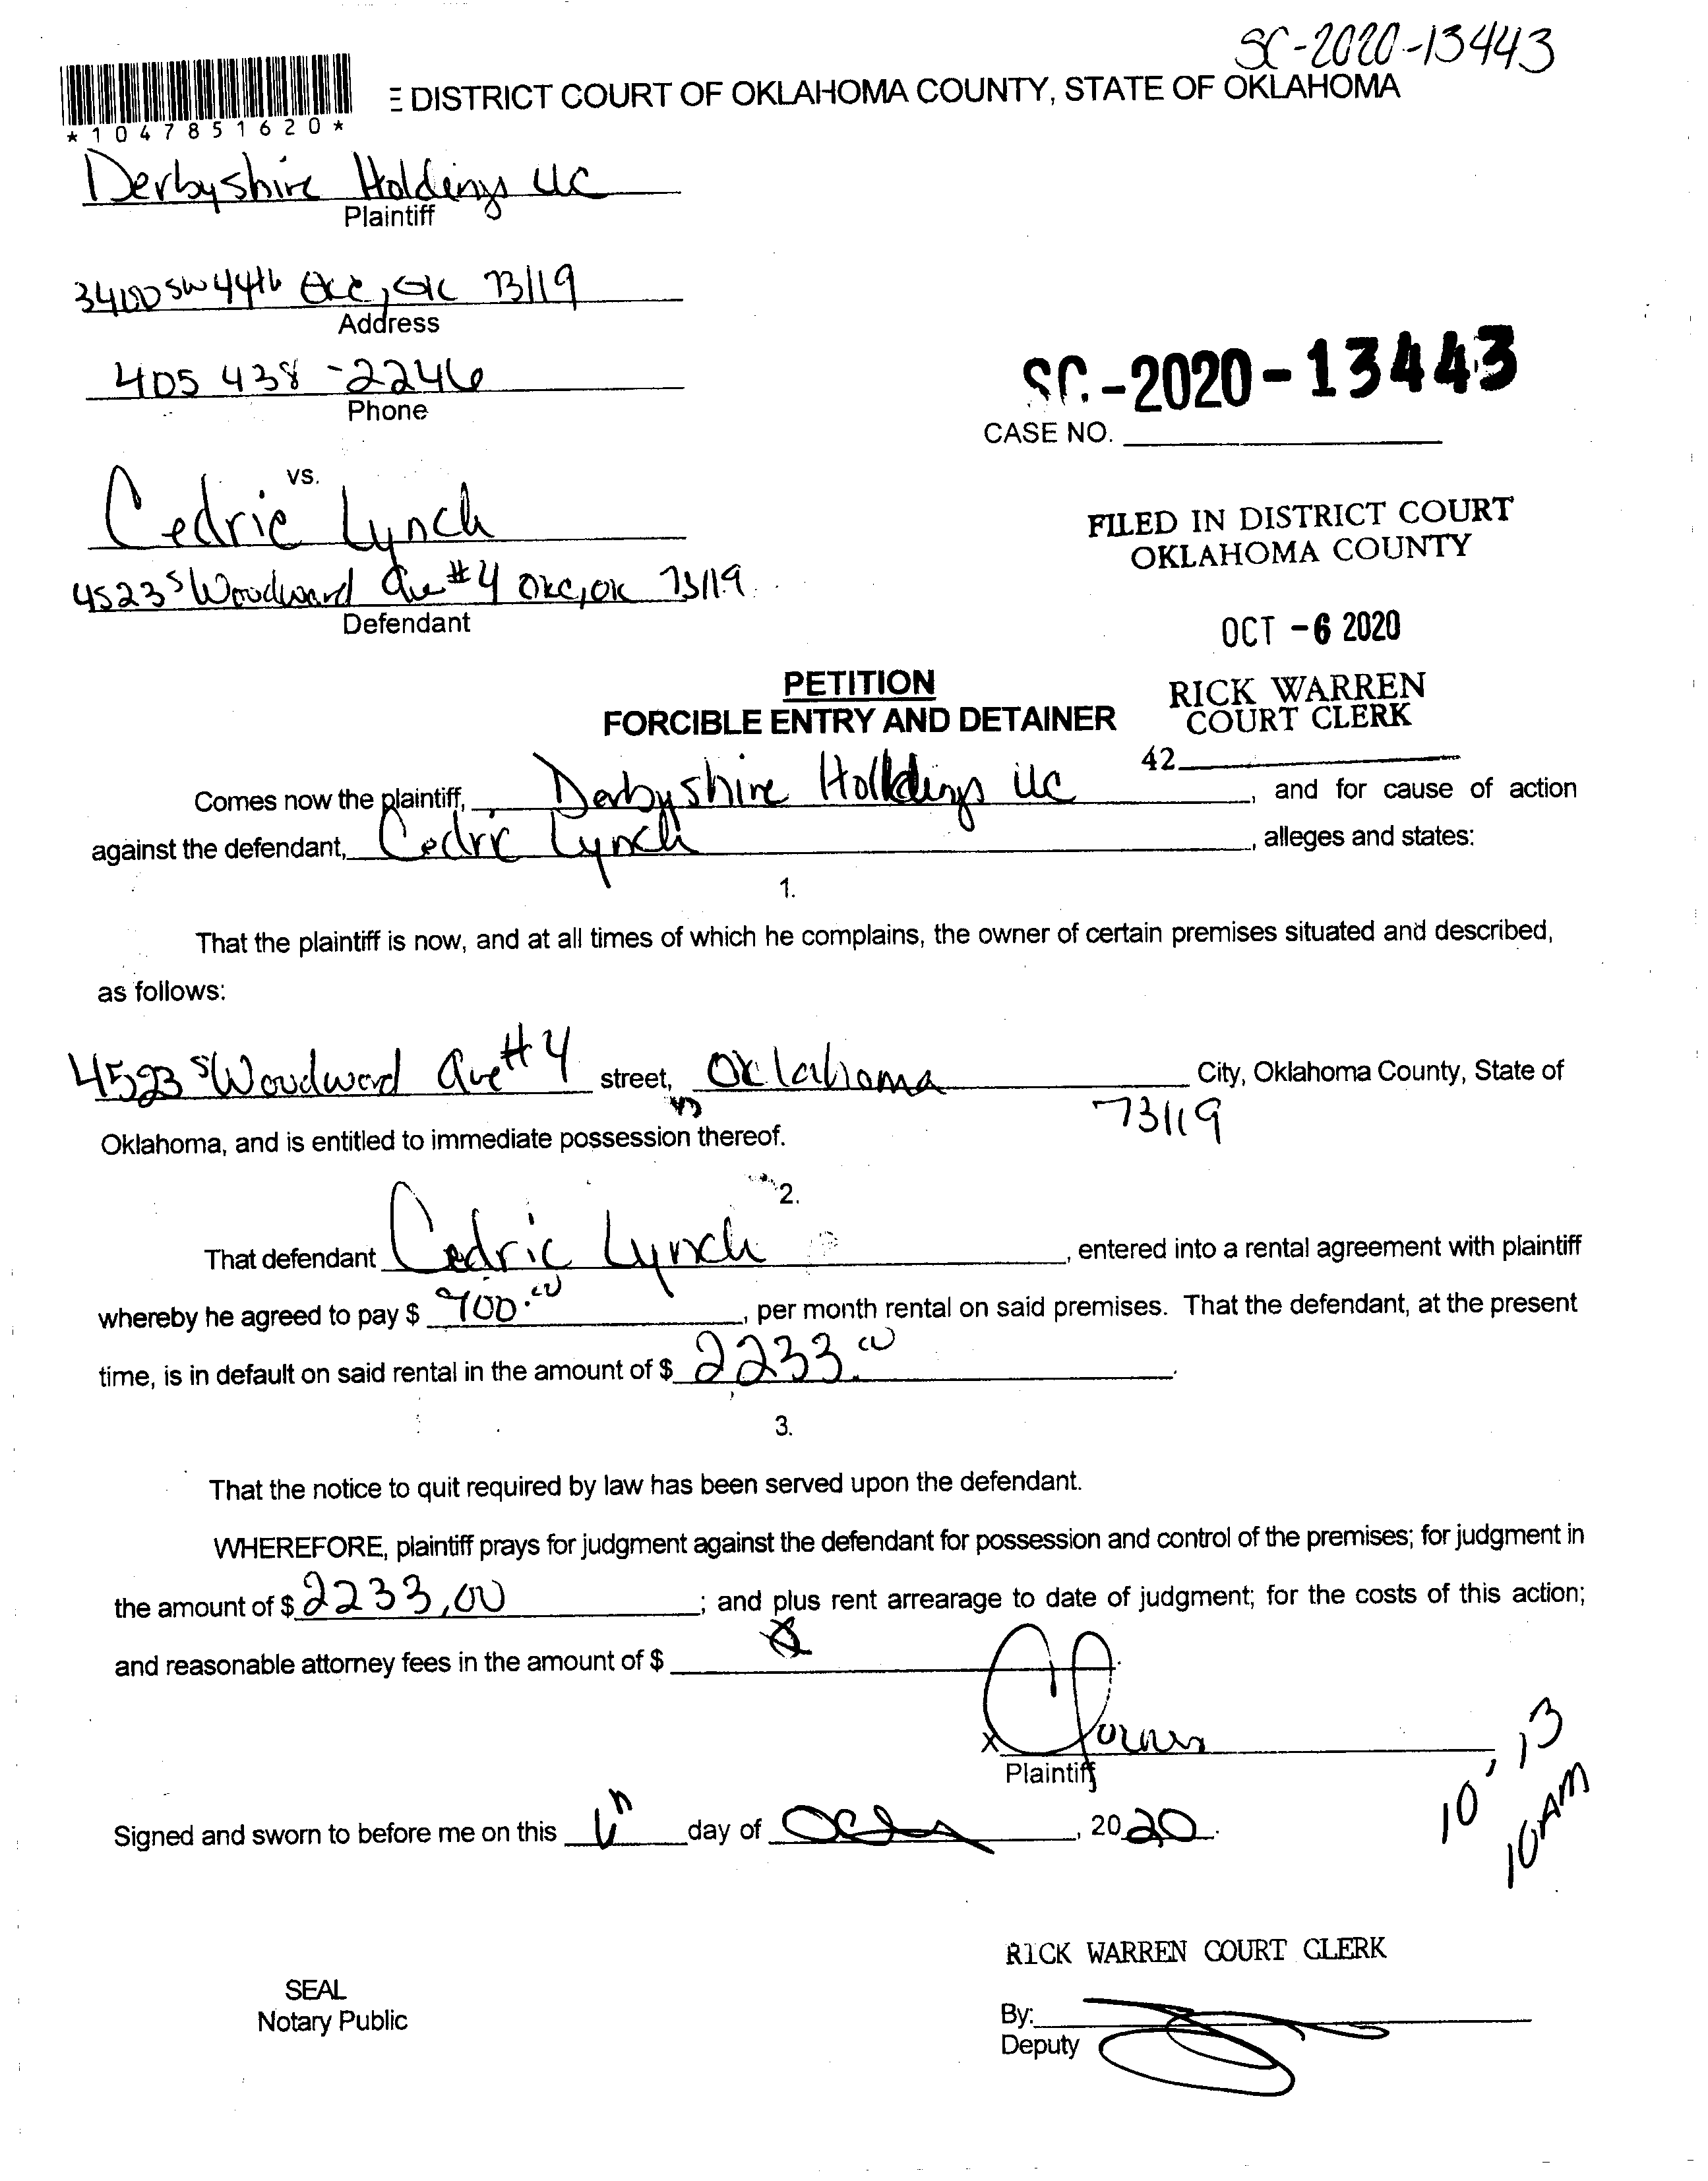 SC-2020-13443
E DISTRICT COURT OF OKLAHOMA COUNTY, STATE OF OKLAHOMA
*1047851620*
Derbyshire Holdings LLC
Plaintiff
SW 44th OKC, OK 73119
Address
405 438-2246
Phone
SC-2020-13443
CASE NO.
vs.
Cedric Lynch
4523 S Woodward Ave #4 OKC, OK 73119
Defendant
FILED IN DISTRICT COURT
OKLAHOMA COUNTY
OCT -6 2020
RICK WARREN
COURT CLERK
42
PETITION
FORCIBLE ENTRY AND DETAINER
Comes now the plaintiff, Derbyshire Holldings LLC, and for cause of action
against the defendant, Cedric Lynch, alleges and states:
1.
That the plaintiff is now, and at all times of which he complains, the owner of certain premises situated and described,
as follows:
4523 S Woodward Ave #4 street, Oklahoma City, Oklahoma County, State of
73119
Oklahoma, and is entitled to immediate possession thereof.
2.
That defendant Cedric Lynch, entered into a rental agreement with plaintiff
whereby he agreed to pay $ 700.00, per month rental on said premises. That the defendant, at the present
time, is in default on said rental in the amount of $ 2233.00.
3.
That the notice to quit required by law has been served upon the defendant.
WHEREFORE, plaintiff prays for judgment against the defendant for possession and control of the premises; for judgment in
the amount of $ 2233,00; and plus rent arrearage to date of judgment; for the costs of this action;
and reasonable attorney fees in the amount of $
x
Plaintiff
10,13
10AM
Signed and sworn to before me on this 6th day of October, 2020.
RICK WARREN COURT CLERK
SEAL
Notary Public
By:
Deputy